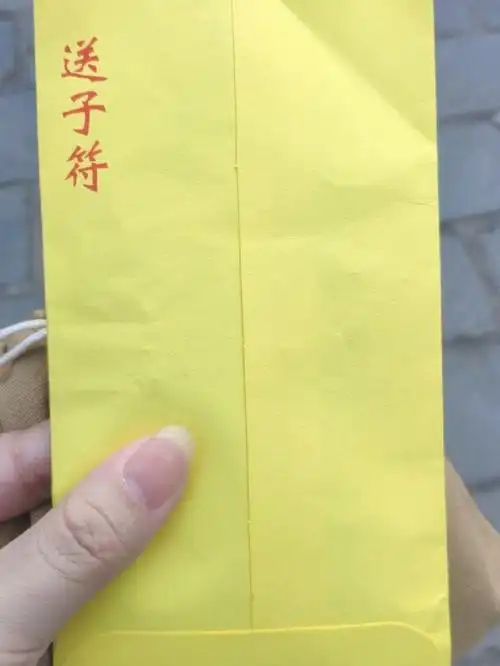 送子符